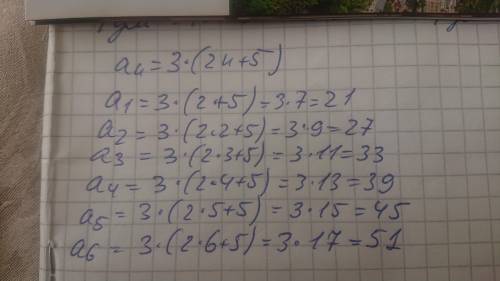 aₙ = 3·(2n+5)
a₁ = 3·(2+5) = 3·7 = 21
a₂ = 3·(2·2+5) = 3·9 = 27
a₃ = 3·(2·3+5) = 3·11 = 33
a₄ = 3·(2·4+5) = 3·13 = 39
a₅ = 3·(2·5+5) = 3·15 = 45
a₆ = 3·(2·6+5) = 3·17 = 51